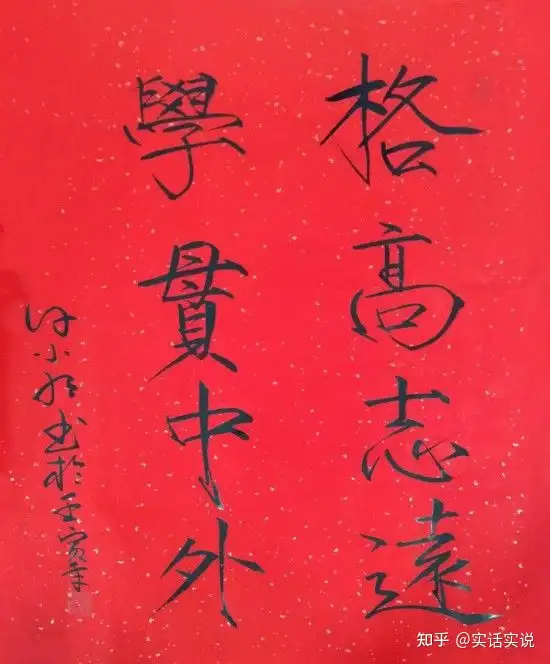 格高志遠
學貫中外
许小明书於壬寅年
知乎 @实话实说